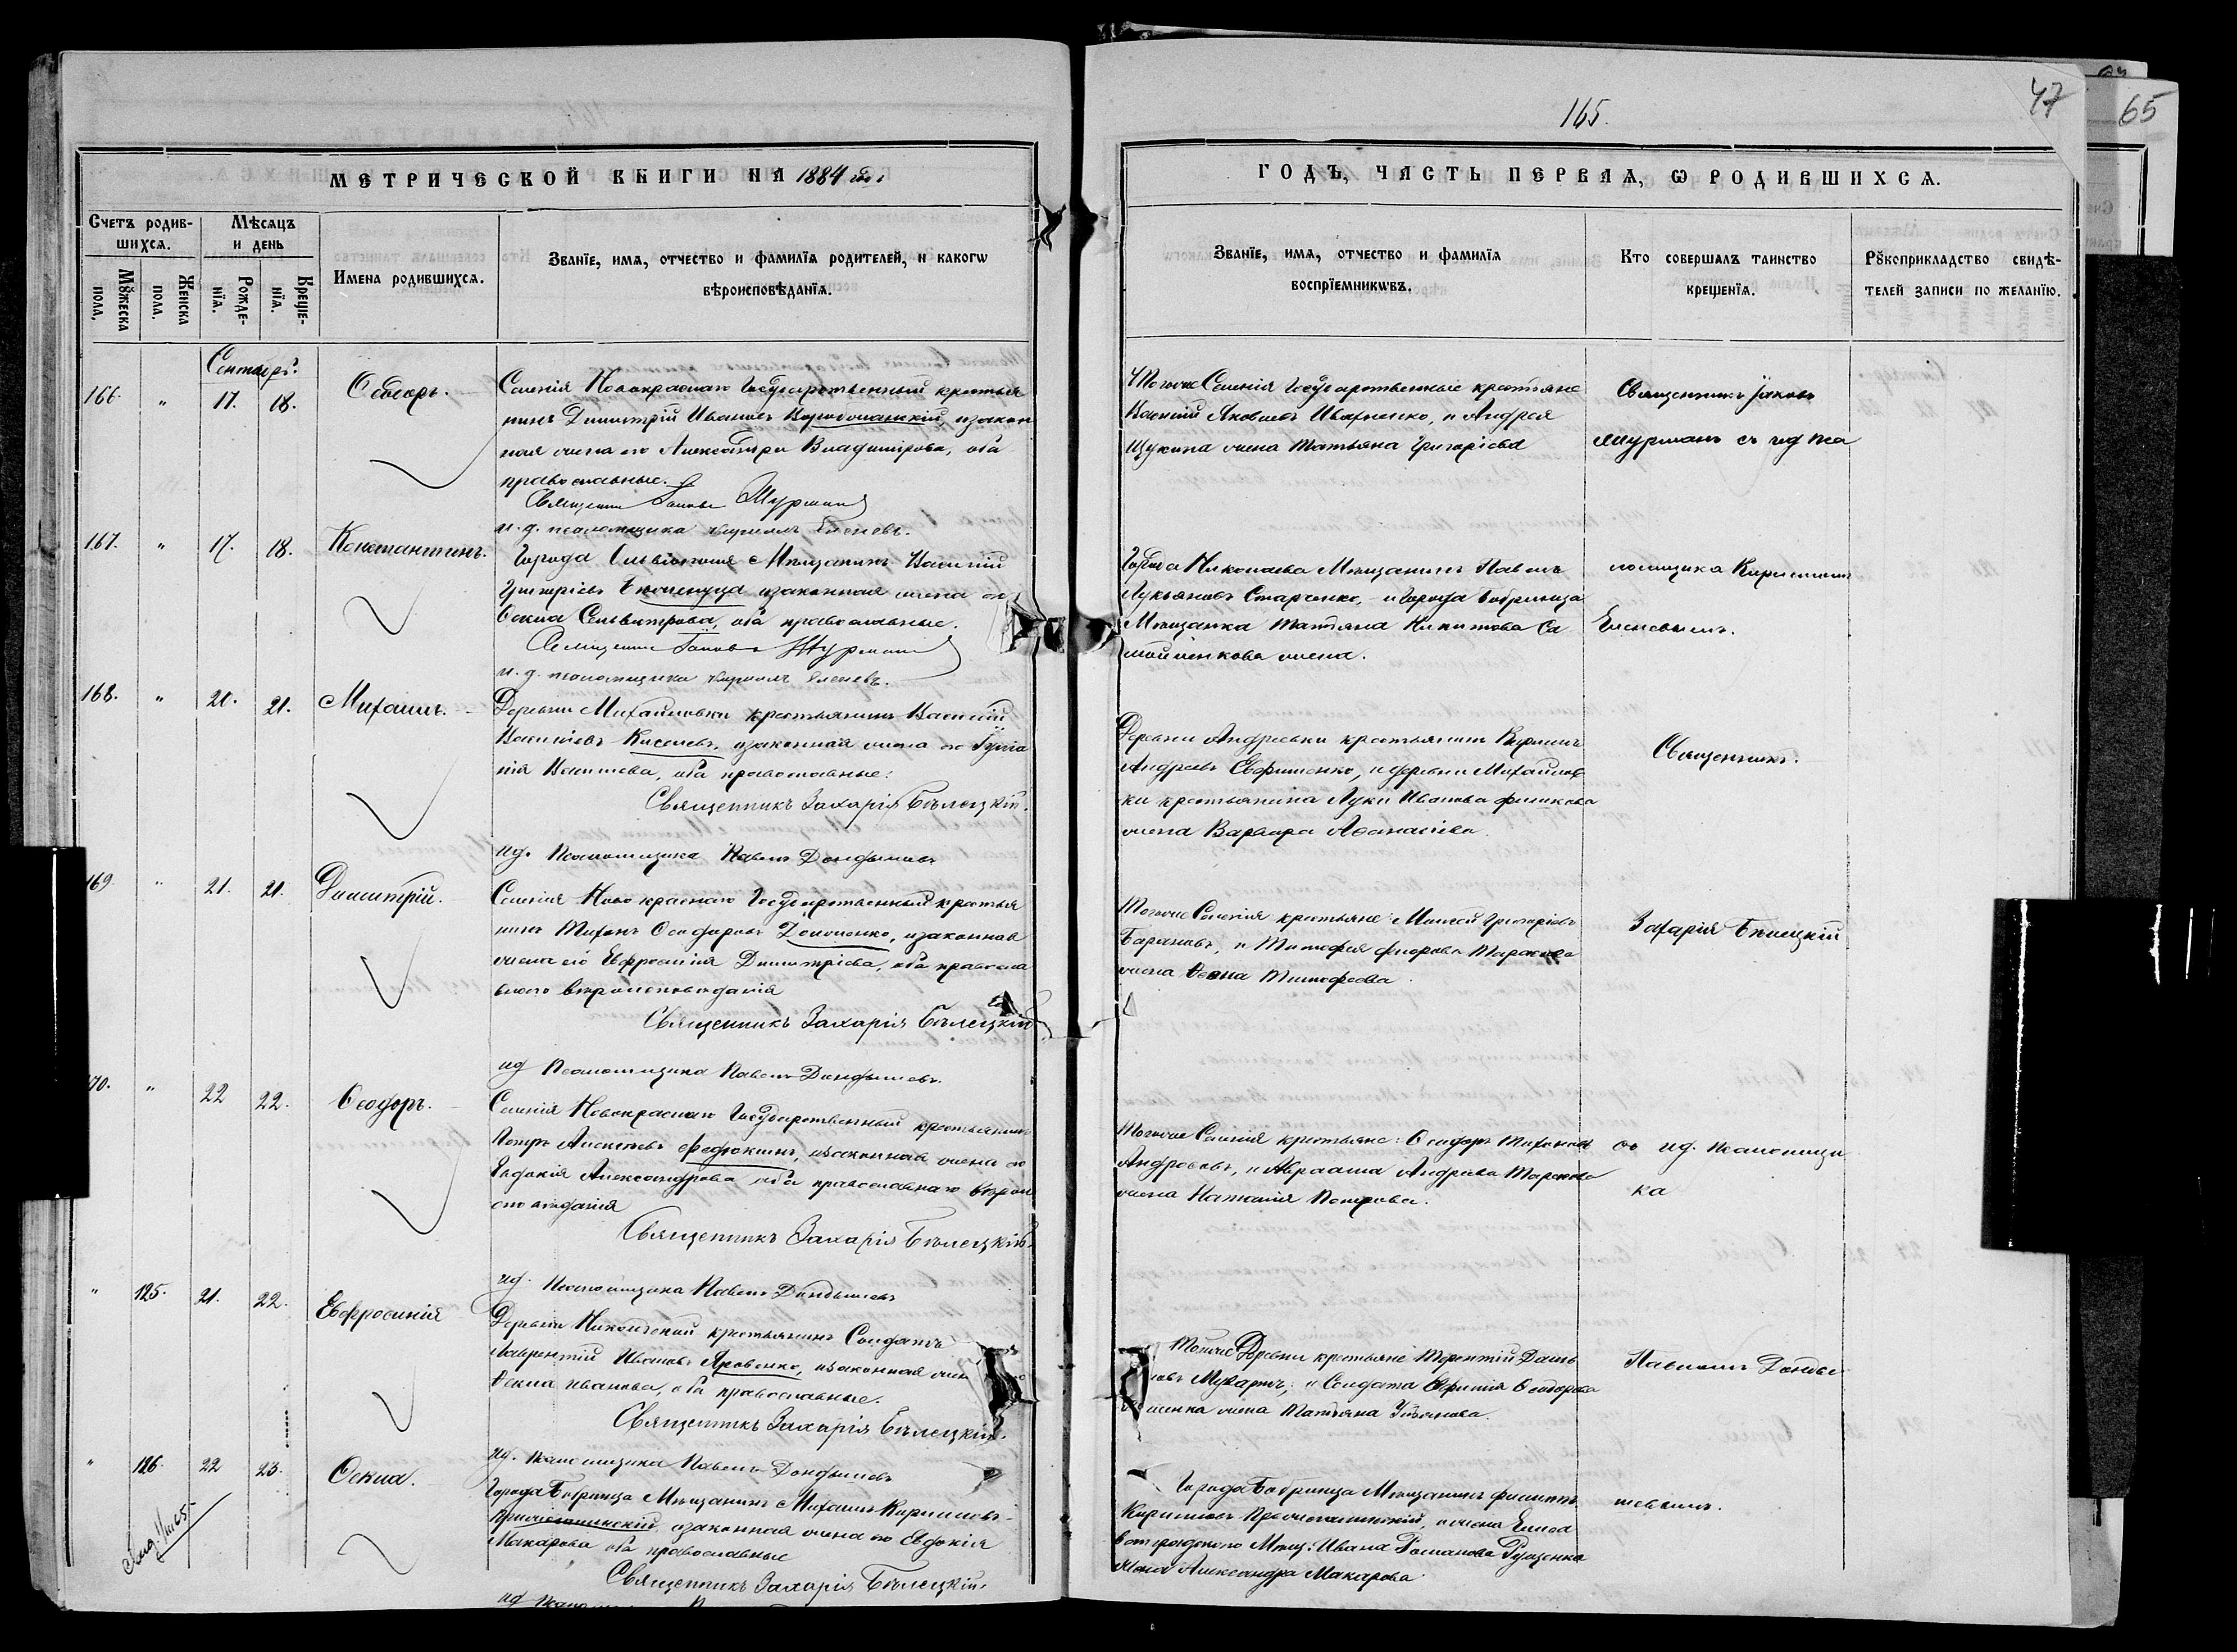 165.
47
65
МЕТРИЧЕСКОЙ КНИГИ НА 1884 годъ
ГОДЪ, ЧАСТЬ ПЕРВАЯ, Ѡ РОДИВШИХСѦ.
Счетъ родив-
шихсѧ.
Мѣсяцъ
и день
Мꙋжеска
пола.
Женска
пола.
Рожде-
нїѧ.
Креще-
нїѧ.
Имена родившихсѧ.
Званїе, имѧ, отчество и фамилїѧ родителей, и какогѡ
вѣроисповѣданїѧ.
Званїе, имѧ, отчество и фамилїѧ
воспрїемникѡвъ.
Кто совершалъ таинство
крещенїѧ.
Рꙋкоприкладство свидѣ-
телей записи по желанїю.
Сентябрь.
166. " 17. 18. Ѳеодоръ.
Селенія Новокраснаго Государственный крестья
нинъ Димитрій Ивановъ, изакон
ная жена его Александра Владимірова, оба
православные.
Священникъ Іаковъ Мурманъ
и. д. псаломщика Кириллъ Еленевъ.
Тогоже Селенія Государственные крестьяне
Василій Яковлевъ Ивахненко, и Андрея
Щукина жена Татьяна Григоріева
Священникъ Іаковъ
Мурманъ съ и д пса
167. " 17. 18. Константинъ.
Города Ольвіополя Мѣщанинъ Василій
Григоріевъ изаконная жена его
Ѳекла Сельвестрова, оба православные.
Священникъ Іаковъ Мурманъ
и. д. псаломщика Кириллъ Еленевъ.
Города Николаева Мѣщанинъ Павелъ
Лукьяновъ Старченко, и города Бобринца
Мѣщанка Татьяна Никитова Са
мойленкова жена.
ломщика Кирилломъ
Еленевымъ.
168. " 20. 21. Михаилъ.
Деревни Михайловки крестьянинъ Василій
Васильевъ Киселевъ, изаконная жена его Гуліа
нія Васильева, оба православные.
Священникъ Захарія Бѣлецкій.
ид. Псаломщика Павелъ
Деревни Андреевки крестьянинъ Кириллъ
Андреевъ Евфименко, и деревни Михайлов
ки крестьянина Луки Иванова
жена Варвара Аѳанасіева.
Священникъ.
169. " 21. 21. Димитрій.
Селенія Новокраснаго Государственный крестья
нинъ Тихонъ Ѳеодоровъ, изаконная
жена его Евфросинія Димитріева, оба правосла
внаго вѣроисповѣданія
Священникъ Захарія Бѣлецкій
ид Псаломщика Павелъ
Тогоже Селенія крестьяне: Моисей Григоріевъ
Барановъ, и Тимофея Тарасова
жена Ѳекла Тимофеева.
Захарія Бѣлецкій
170. " 22 22. Ѳеодоръ.
Селенія Новокраснаго Государственный крестьянинъ
Петръ Алексѣевъ Федюкинъ, изаконная жена его
Евдокія Александрова оба православнаго вѣрои
сповѣданія
Священникъ Захарія Бѣлецкій.
ид. Псаломщика Павелъ
Тогоже Селенія крестьяне: Ѳеодоръ Тихонов
Андросовъ, и Авраама Андреева Тарасова
жена Наталія Петрова.
съ ид. псаломщи
ка
" 125. 21. 22. Евфросинія
Деревни крестьянинъ Солдатъ
Лаврентій Ивановъ Яровенко, изаконная жен
Ѳекла Иванова, оба православные.
Священникъ Захарія Бѣлецкій.
ид. псаломщика Павелъ
Тойже Деревни крестьяне Терентій
и Солдата Ѳеодорова
жена Татьяна
Павломъ
" 126. 22 23. Ѳекла.
Города Бобринца Мѣщанинъ Михаилъ Кирилловъ
изаконная жена его Евдокія
Макарова оба православные
Священникъ Захарія Бѣлецкій.
Города Бобринца Мѣщанинъ Филиппъ
Кирилловъ, и жена Елиса
ветградскаго Мѣщ. Ивана Романова
жена Александра Макарова.